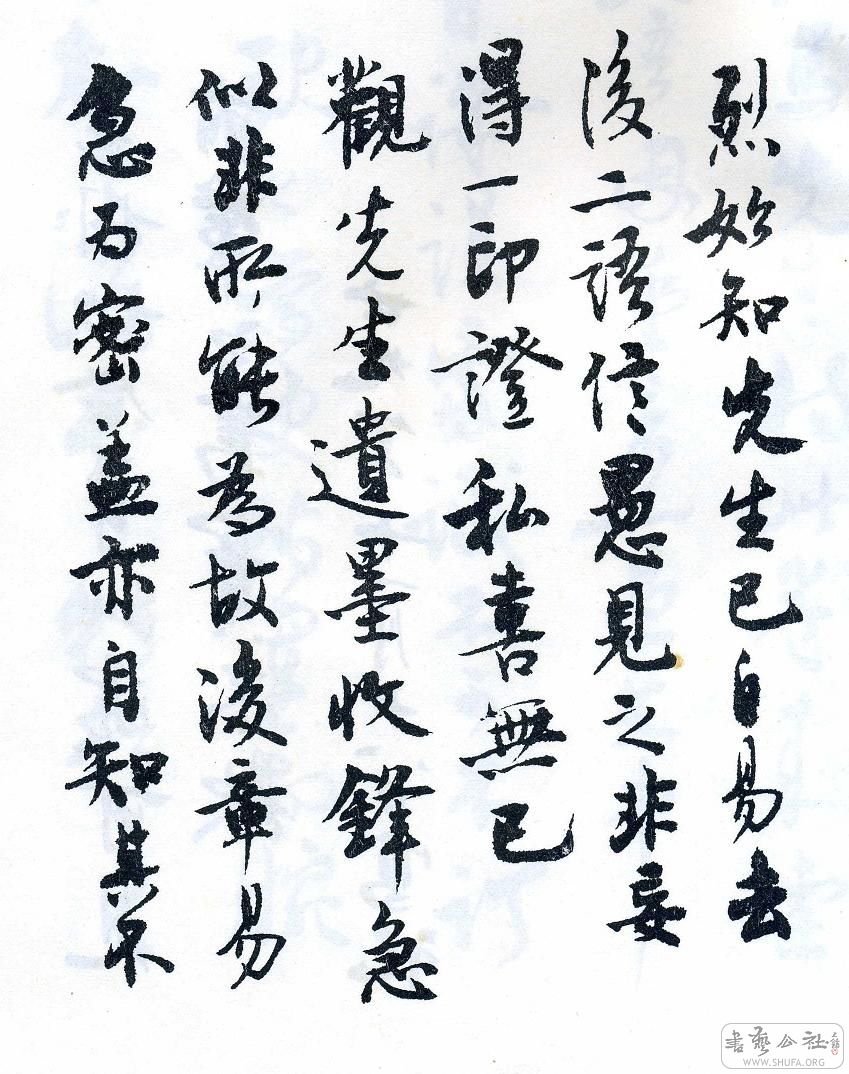 烈始知先生已自易去
後二語信愚見之非妄
得一印證私喜無已
觀先生遺墨收鋒急
似非所能為故後章易
急为密蓋亦自知其不
書藝公社
WWW.SHUFA.ORG